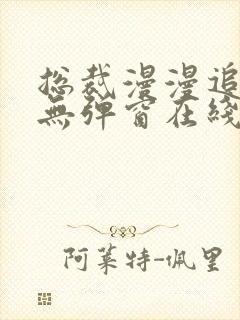 总裁漫漫追
无弹窗在线
阿莱特-佩里